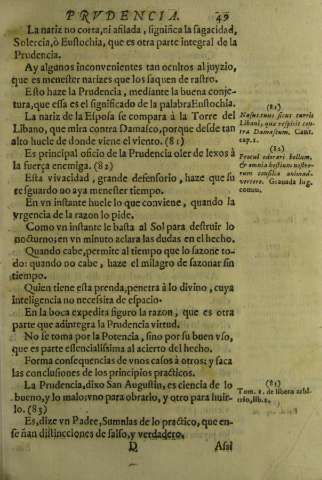 PRVDENCIA.
49
La nariz no corta, ni afilada, significa la sagacidad,
Solercia, ò Eustochia, que es otra parte integral de la
Prudencia.
Ay algunos inconvenientes tan ocultos al juyzio,
que es menester narizes que los saquen de rastro.
Esto haze la Prudencia, mediante la buena conje-
tura, que essa es el significado de la palabra Eustochia.
La nariz de la Esposa se compara à la Torre del
Libano, que mira contra Damasco, porque desde tan
alto huele de donde viene el viento. (81)
Es principal oficio de la Prudencia oler de lexos à
la fuerça enemiga. (82)
Esta vivacidad, grande defensorio, haze que su
resguardo no aya menester tiempo.
En vn instante huele lo que conviene, quando la
vrgencia de la razon lo pide.
Como vn instante le basta al Sol para destruir lo
nocturno; en vn minuto aclara las dudas en el hecho.
Quando cabe, permite al tiempo que lo sazone to-
do: quando no cabe, haze el milagro de sazonar sin
tiempo.
Quien tiene esta prenda, penetra à lo divino, cuya
inteligencia no necessita de espacio.
En la boca expedita figuro la razon, que es otra
parte que adintegra la Prudencia virtud.
No se toma por la Potencia, sino por su buen vso,
que es parte essencialissima al acierto del hecho.
Forma consequencias de vnos casos à otros; y saca
las conclusiones de los principios practicos.
La Prudencia, dixo San Augustin, es ciencia de lo
bueno, y lo malo; vno para obrarlo, y otro para huir-
lo. (83)
Es, dize vn Padre, Sumulas de lo practico, que en-
señan distincciones de falso, y verdadero.
D
Assi
(81)
Nasus tuus sicut turris
Libani, quæ respicit con-
tra Damascum. Cant.
cap. 7.
(82)
Procul odorari bellum,
& omnia hostium
consilia animad-
vertere. Granada
(83)
Tom. 1. de libero arbi-
trio, lib. 1.